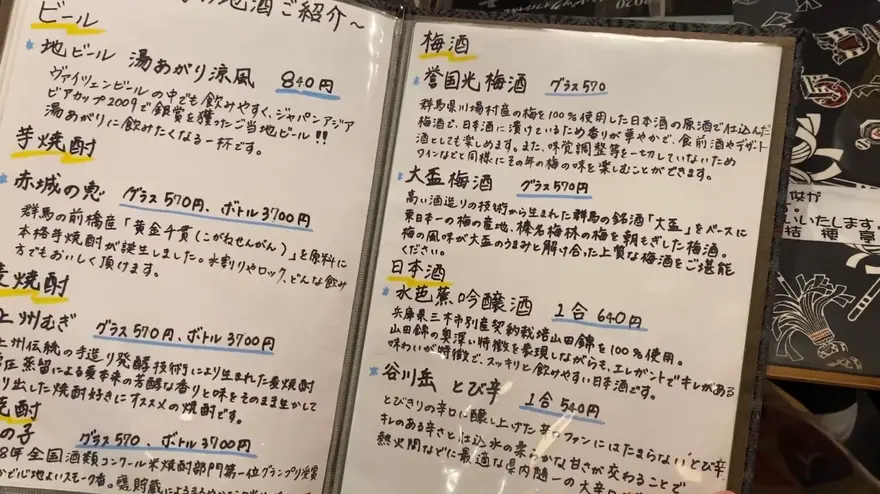 地酒ご紹介～
ビール
地ビール 湯あがり涼風 840円
ヴァイツェンビールの中でも飲みやすく、ジャパンアジア
ビアカップ2009で銀賞を獲ったご当地ビール!!
湯あがりに飲みたくなる一杯です。
芋焼酎
赤城の恵 グラス570円、ボトル3700円
群馬の前橋産「黄金千貫(こがねせんがん)」を原料に
本格芋焼酎が誕生しました。水割りやロック、どんな飲み
方でもおいしく頂けます。
麦焼酎
上州むぎ グラス570円、ボトル3700円
上州伝統の手造り発酵技術により生まれた麦焼酎
圧蒸留による麦本来の芳醇な香りと味をそのまま生かして
り出した焼酎好きにオススメの焼酎です。
焼酎
の子 グラス570、ボトル3700円
8年全国酒類コンクール米焼酎部門第一位グランプリ受賞
梅酒
誉国光梅酒 グラス570
群馬県川場村産の梅を100%使用した日本酒の原酒で仕込んだ
梅酒で、日本酒に漬けているため香りが華やかで、食前酒やデザート
酒としても楽しめます。また、味覚調整等を一切していないため
ワインなどと同様にその年の梅の味を楽しむことができます。
大盃梅酒 グラス570円
高い酒造りの技術から生まれた群馬の銘酒「大盃」をベースに
東日本一の梅の産地、榛名梅林の梅を朝もぎした梅酒。
梅の風味が大盃のうまみと解け合った上質な梅酒をご堪能
ください。
日本酒
水芭蕉吟醸酒 1合 640円
兵庫県三木市別産契約栽培山田錦を100%使用。
山田錦の奥深い特徴を表現しながらも、エレガントでキレがある
味わいが特徴で、スッキリと飲みやすい日本酒です。
谷川岳 とび辛 1合540円
とびきりの辛口に醸し上げた辛口ファンにはたまらない"とび辛"
キレのある辛さと仕込水の柔らかな甘さが交わることで
熱火間などに最適な県内随一の大辛口
いいたします。
桔梗亭